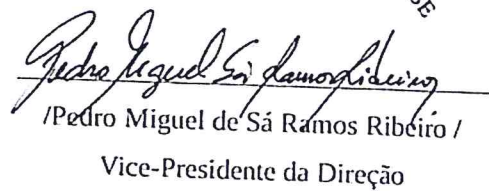 Pedro Miguel Sá Ramos Ribeiro
/Pedro Miguel de Sá Ramos Ribeiro /
Vice-Presidente da Direção